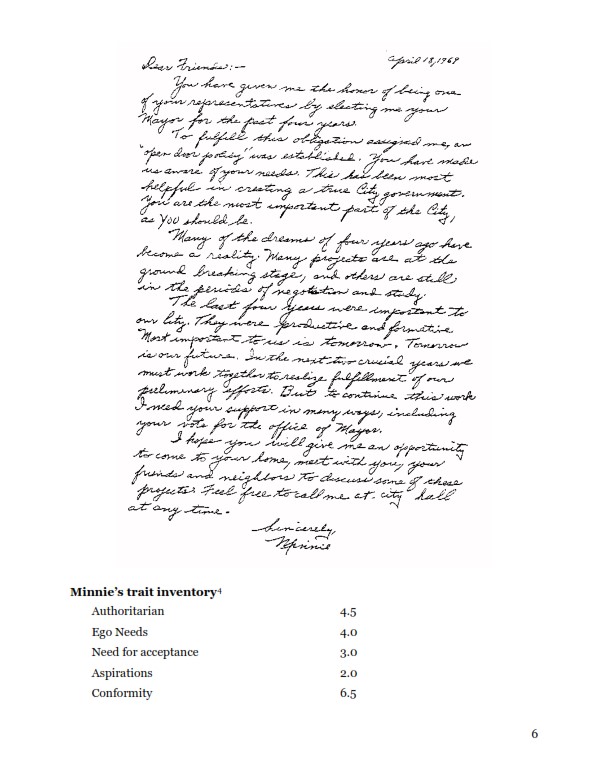 April 18, 1969
Dear Friends:—
You have given me the honor of being one
of your representatives by electing me your
Mayor for the past four years.
To fulfill this obligation assigned me, an
"open door policy" was established. You have made
us aware of your needs. This has been most
helpful in creating a true City government.
You are the most important part of the City,
as YOU should be.
Many of the dreams of four years ago have
become a reality. Many projects are at the
ground breaking stage, and others are still
in the periods of negotiation and study.
The last four years were important to
our City. They were productive and formative
Most important to us is tomorrow. Tomorrow
is our future. In the next two crucial years we
must work together to realize fulfillment of our
preliminary efforts. But to continue this work
I need your support in many ways, including
your vote for the office of Mayor.
I hope you will give me an opportunity
to come to your home, meet with you, your
friends and neighbors to discuss some of these
projects. Feel free to call me at city hall
at any time.
Sincerely,
Minnie
Minnie's trait inventory⁴
Authoritarian 4.5
Ego Needs 4.0
Need for acceptance 3.0
Aspirations 2.0
Conformity 6.5
6